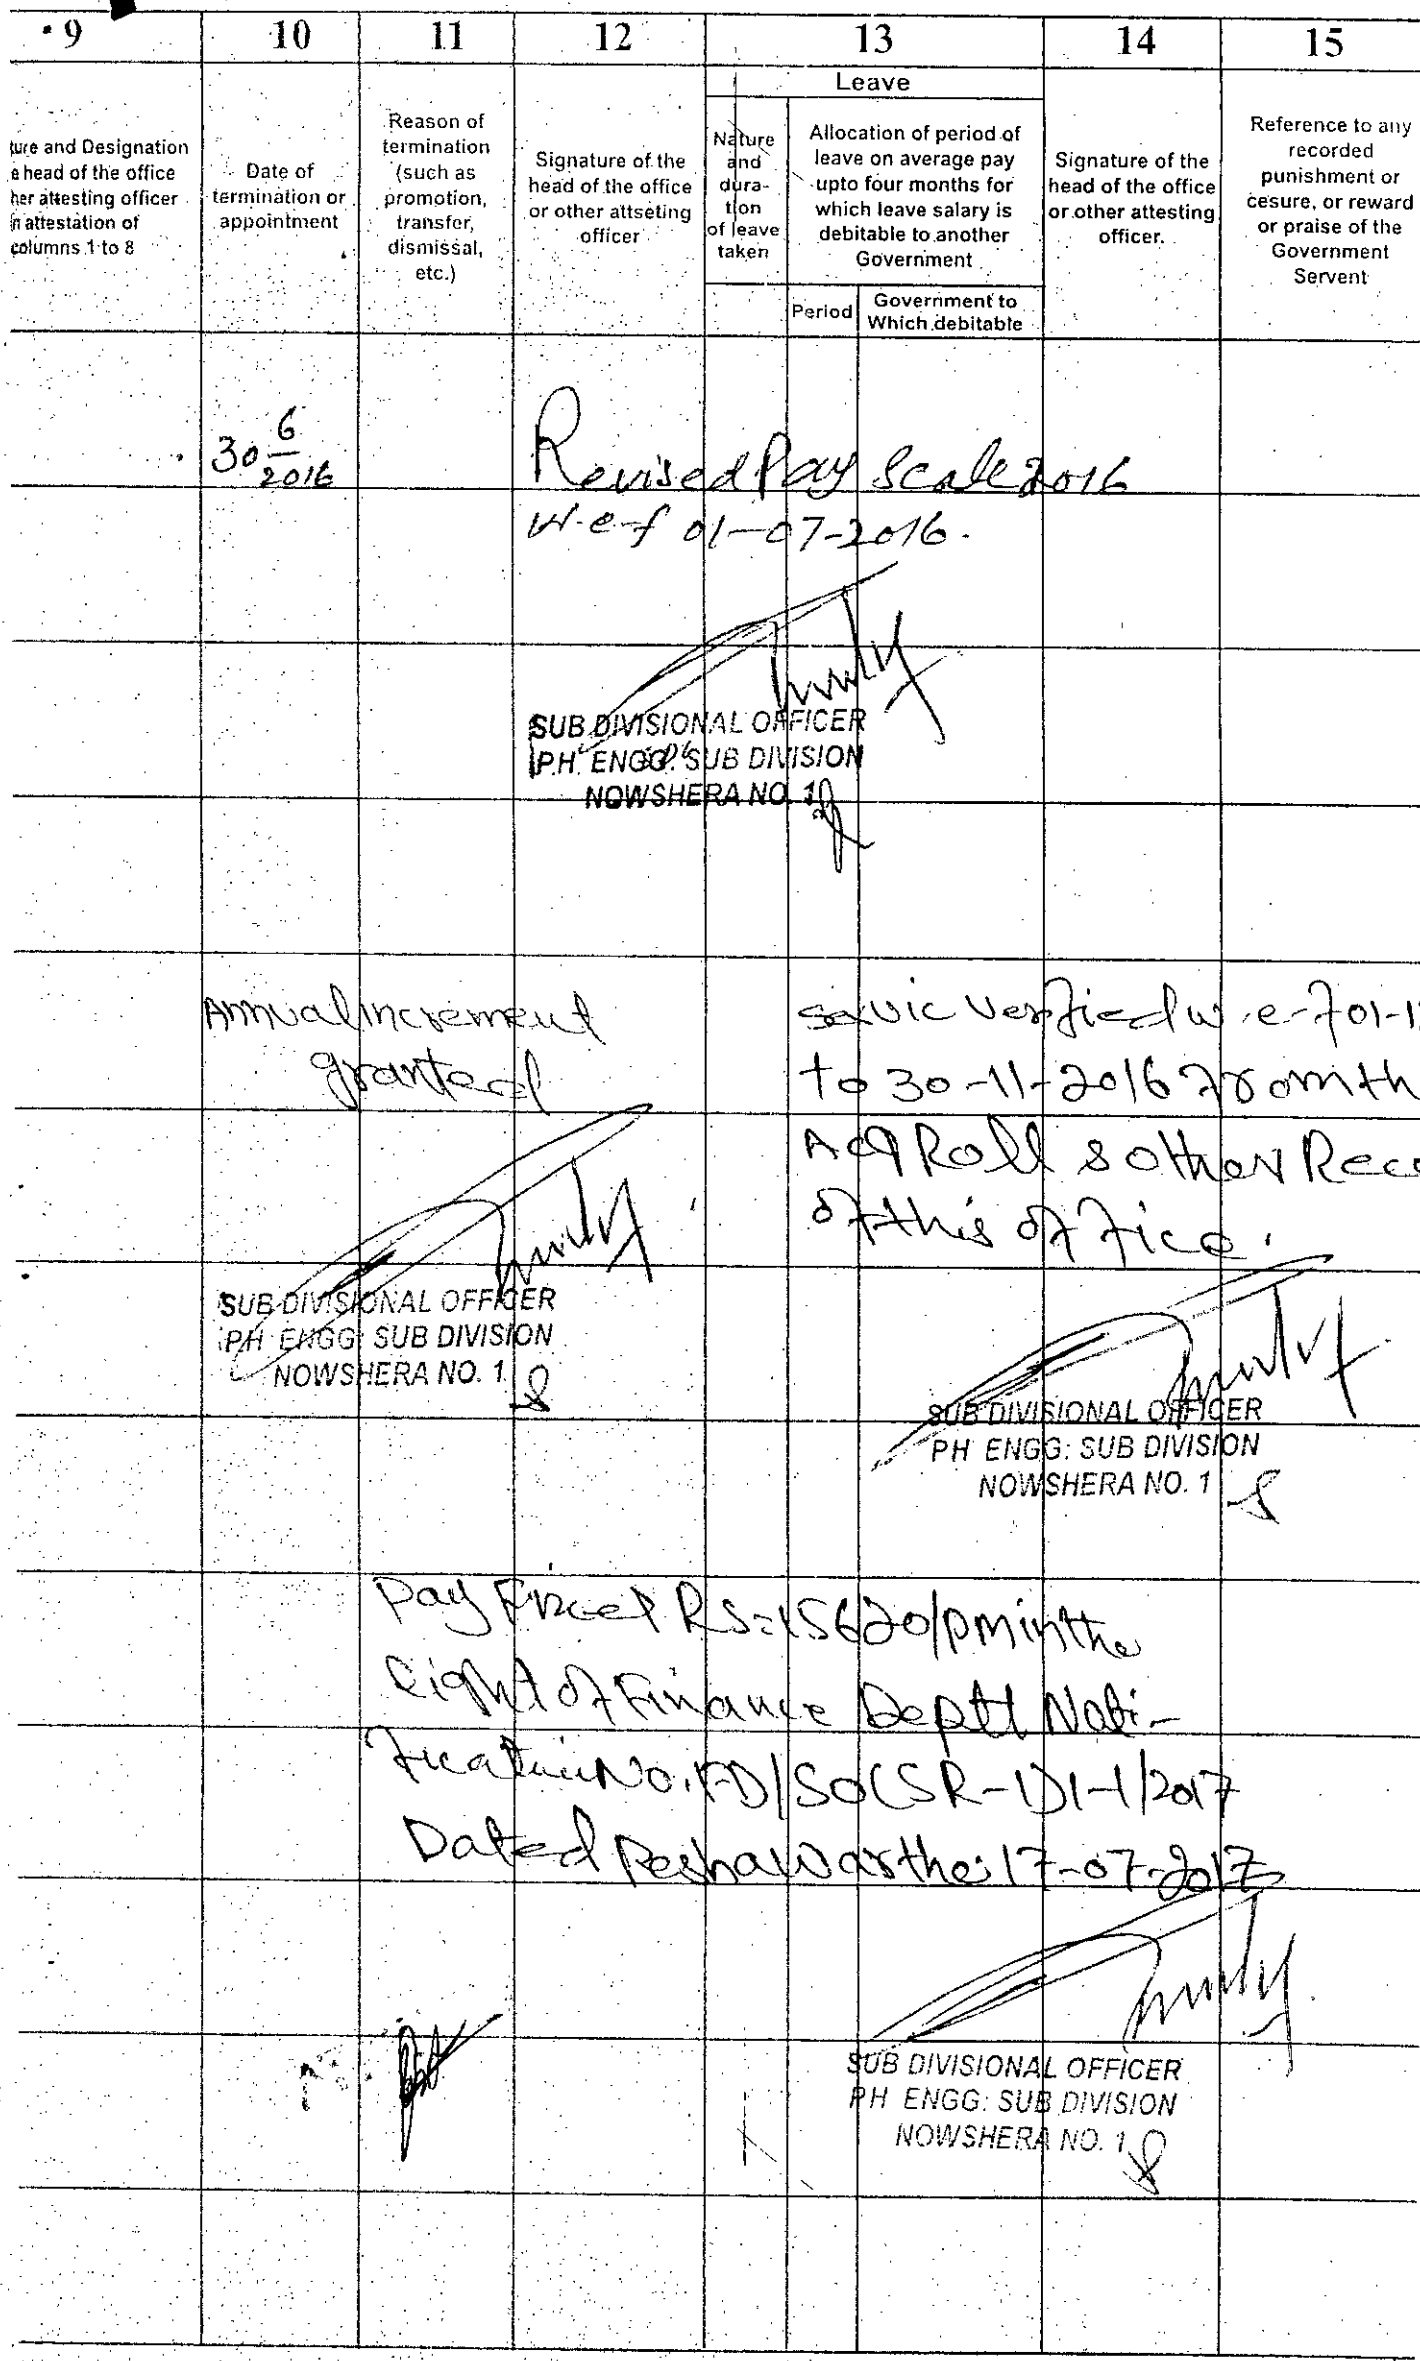 9 10 11 12 13 14 15
ture and Designation
a head of the office
her attesting officer
n attestation of
columns 1 to 8
Date of
termination or
appointment
Reason of
termination
(such as
promotion,
transfer,
dismissal,
etc.)
Signature of the
head of the office
or other attseting
officer
Leave
Nature
and
dura-
tion
of leave
taken
Allocation of period of
leave on average pay
upto four months for
which leave salary is
debitable to another
Government
Period
Government to
Which debitable
Signature of the
head of the office
or other attesting
officer.
Reference to any
recorded
punishment or
cesure, or reward
or praise of the
Government
Servent
30 6/2016
Revised Pay Scale 2016
W.e.f 01-07-2016.
SUB DIVISIONAL OFFICER
P.H. ENGG: SUB DIVISION
NOWSHERA NO. 1
Annual increment
granted
SUB DIVISIONAL OFFICER
PH ENGG: SUB DIVISION
NOWSHERA NO. 1
servic verified w.e.f 01-1
to 30-11-2016 from th
Acq Roll & other Reco
of this office.
SUB DIVISIONAL OFFICER
PH ENGG: SUB DIVISION
NOWSHERA NO. 1
Pay Fixed Rs=15620/pm in the
light of Finance Deptt Noti-
fication No. FD/SO(SR-1)1-1/2017
Dated Peshawar the: 17-07-2017
SUB DIVISIONAL OFFICER
PH ENGG: SUB DIVISION
NOWSHERA NO. 1